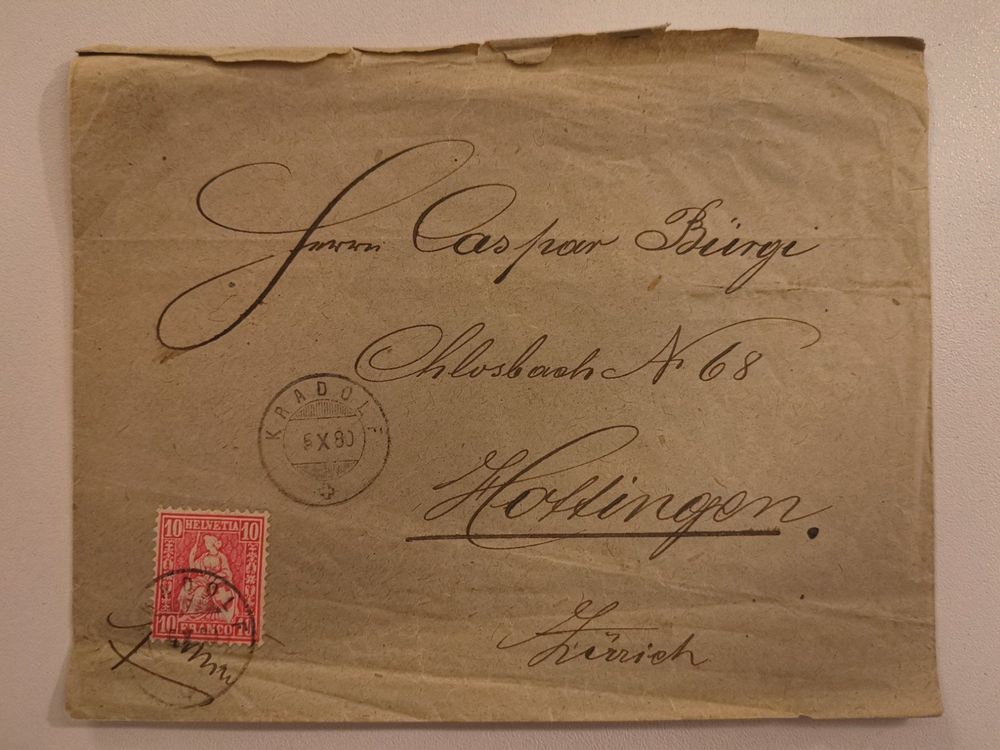 Herrn Caspar Bürgi
Chlosbach Nr 68
Hottingen.
Zürich
KRADOLF
5 X 80
10 HELVETIA 10
10 FRANCO